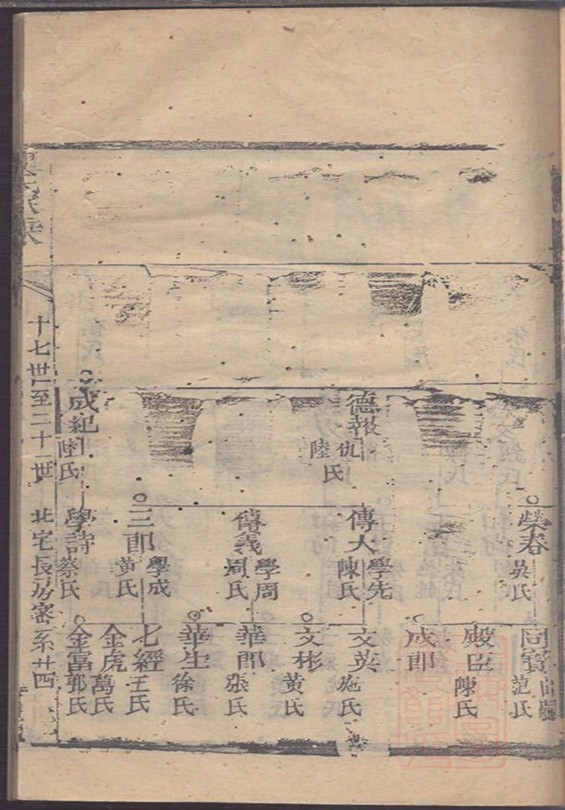 德報
仇氏
陸氏
成紀
陸氏
榮春
吳氏
傳大
學先
陳氏
僖義
學周
周氏
三郎
學成
黄氏
學詩
蔡氏
同寶
范氏
殿臣
陳氏
成郎
文英
施氏
文彬
黄氏
華郎
張氏
華生
徐氏
七經
王氏
金虎
萬氏
金富
郭氏
十七世至二十一世
北宅長房客系廿四